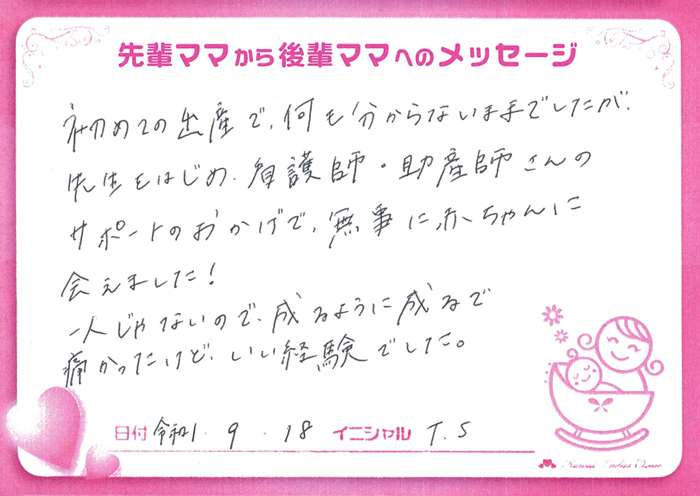 先輩ママから後輩ママへのメッセージ
初めての出産で、何も分からないままでしたが、
先生をはじめ、看護師・助産師さんの
サポートのおかげで、無事に赤ちゃんに
会えました!
一人じゃないので、成るように成るで
痛かったけど、いい経験でした。
日付 令和1.9.18 イニシャル T.S